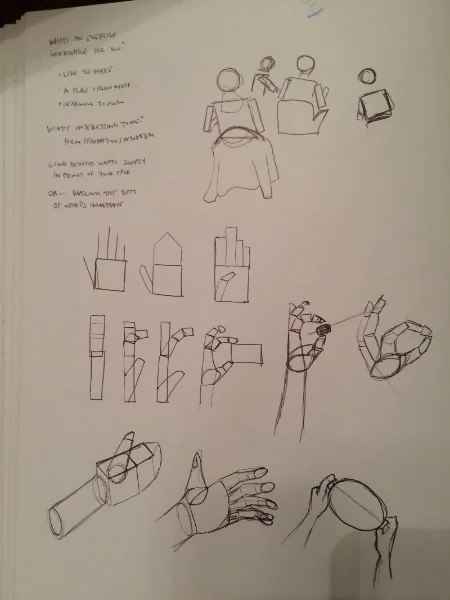 WHAT'S AN EXERCISE
WORTHWHILE FOR YOU?
• LIKE TO MAKE...
• A PLACE I FROM MYSELF...
• LEARNING TO DRAW
WHAT'S INTERESTING TO ME?
FORM / /
GOING BEYOND WHAT'S SIMPLY
IN FRONT OF YOUR FACE
OR... MAKING THE BEST
OF WHAT'S IMMEDIATE